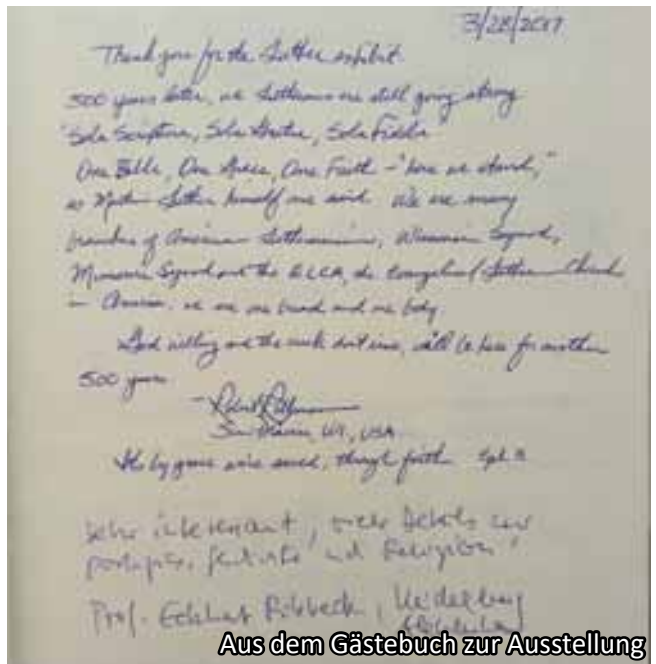 3/28/2017
Thank you for the Luther exhibit.
500 years later, we Lutherans are still going strong
"Sola Scriptura, Sola Gratia, Sola Fides"
One Bible, One Grace, One Faith – "here we stand,"
as Martin Luther himself once said. We are many
branches of American Lutheranism, Wisconsin Synod,
Missouri Synod and the ELCA, the Evangelical Lutheran Church
in America. we are one bread and one body.
God willing and the creek don't rise, we'll be here for another
500 years
Robert
Sun Prairie, WI, USA
by grace we're saved, through faith Eph 2
Sehr interessant, viele Details zur
Geschichte und Religion!
Prof. Eckhart Ribbeck, Heidelberg
Aus dem Gästebuch zur Ausstellung